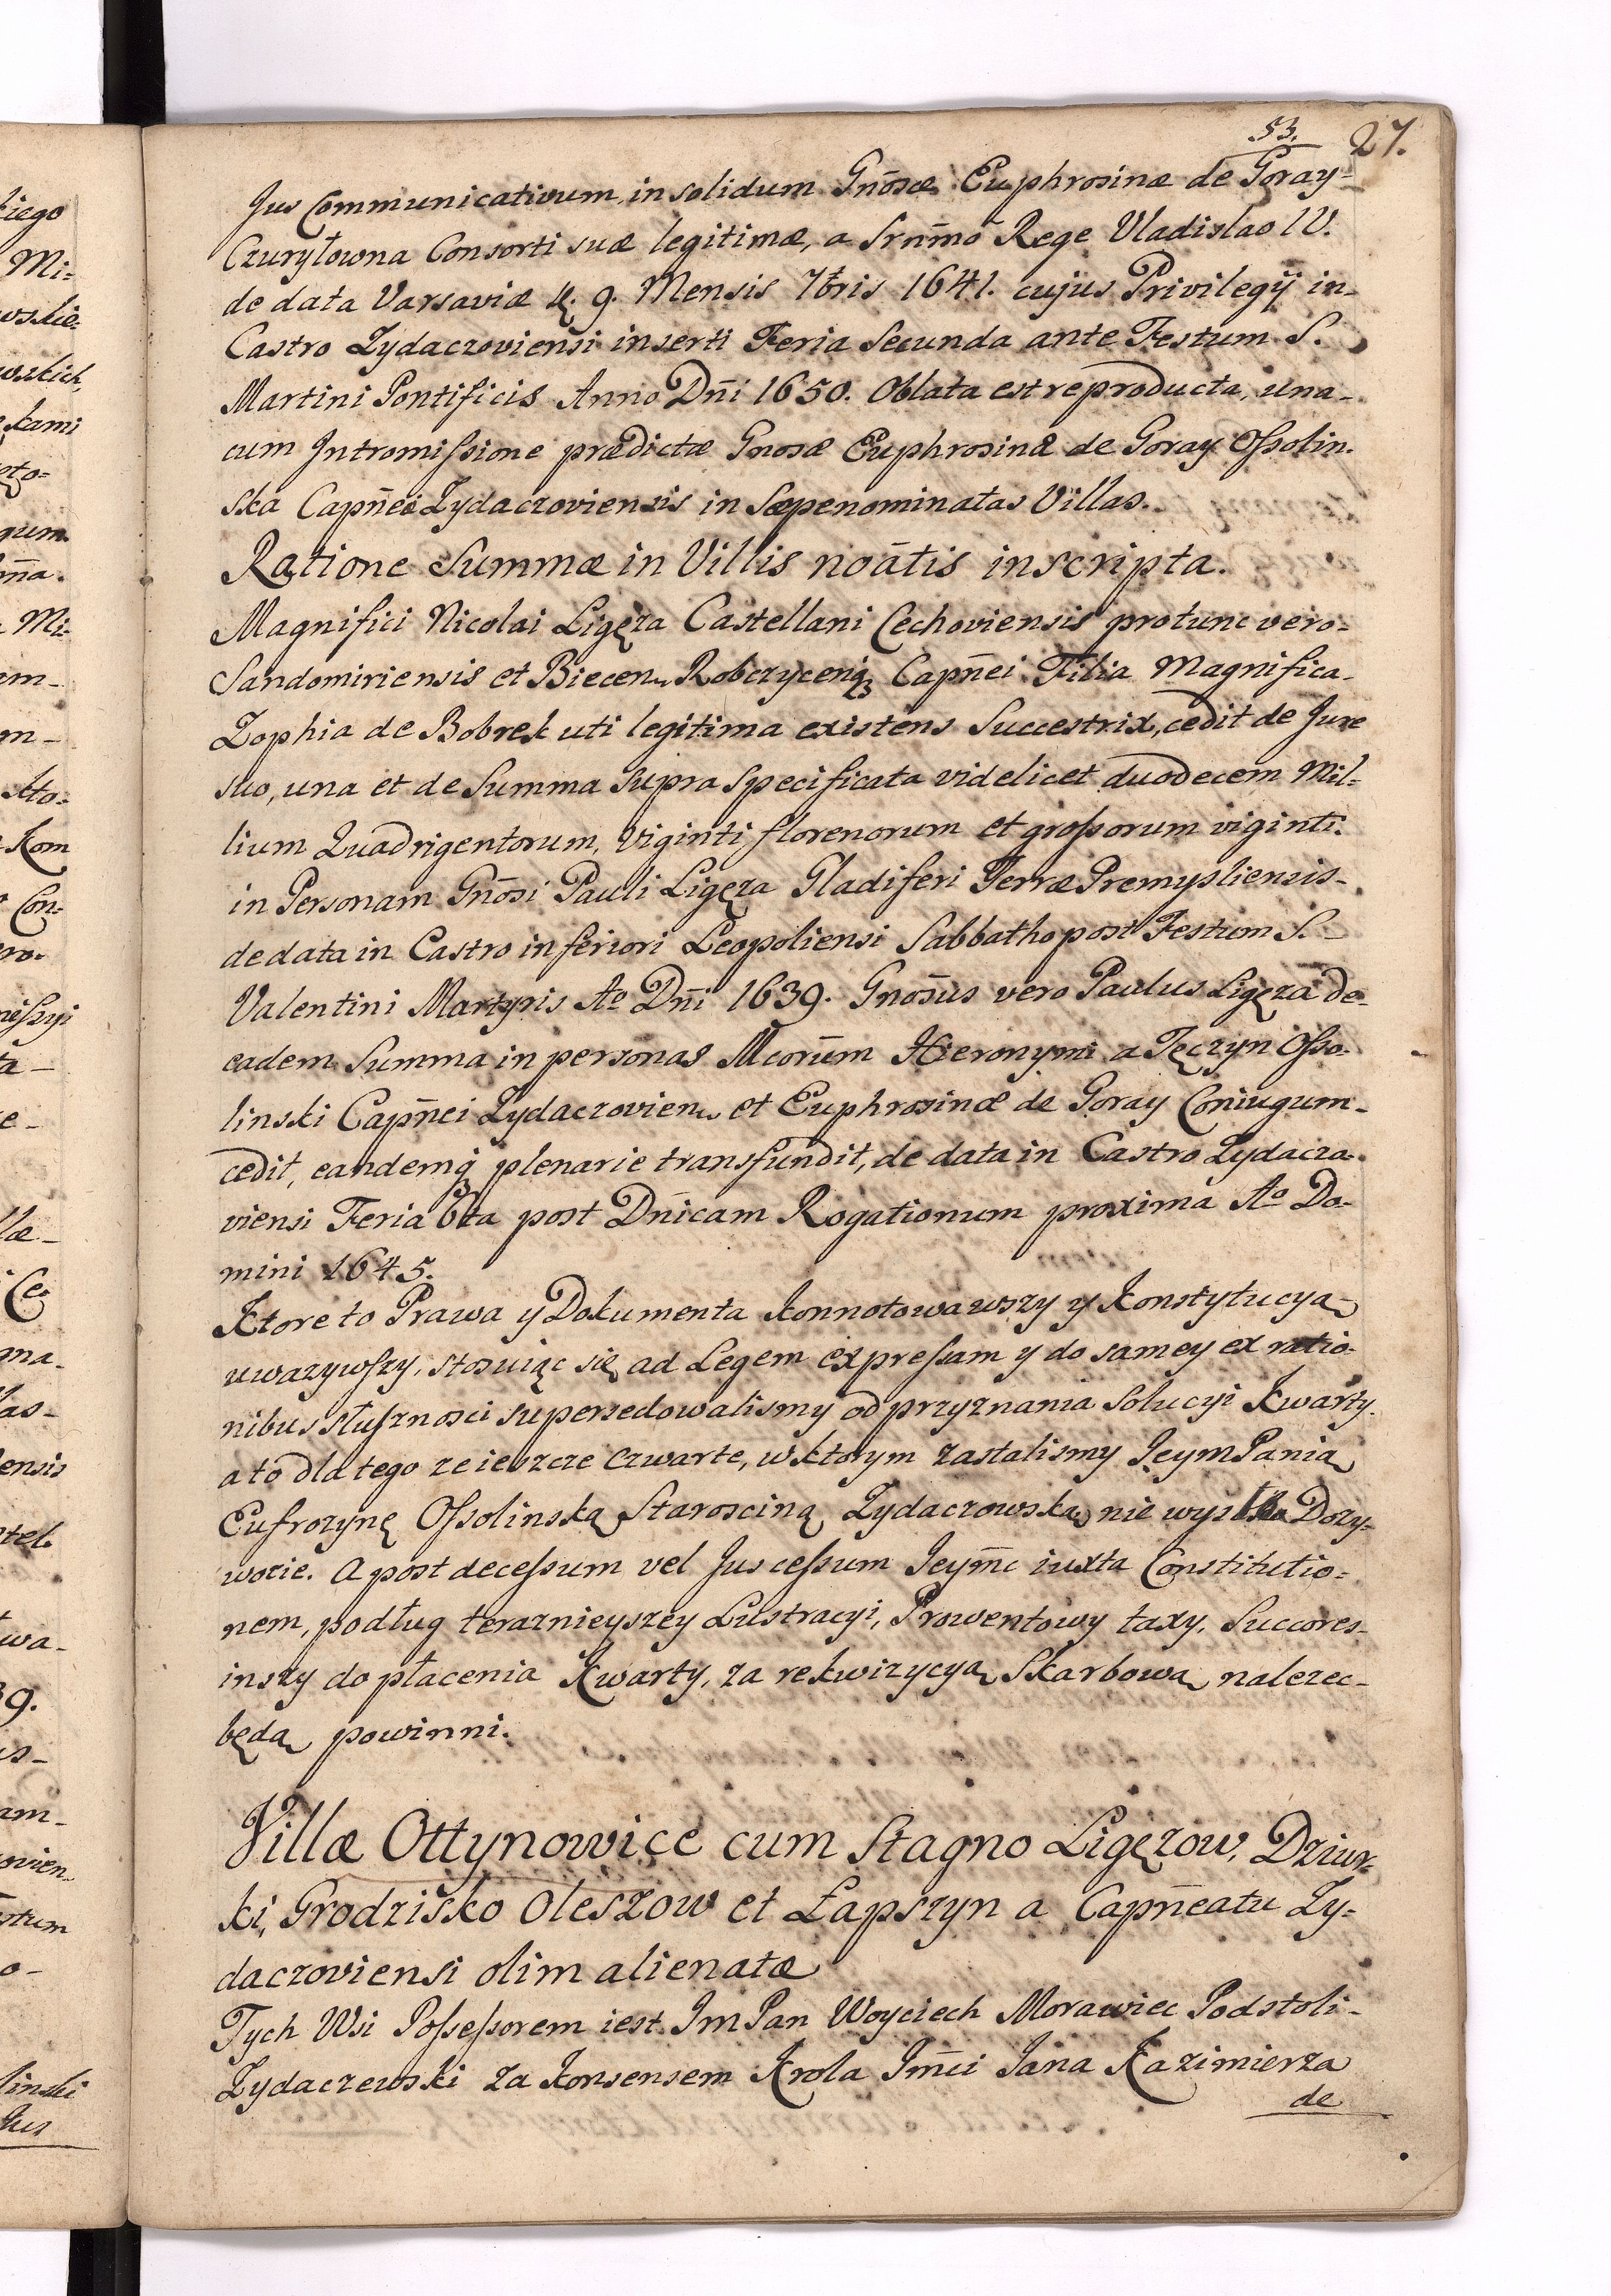 53. 27.
Jus Communicativum in solidum Gnõsæ Euphrosinæ de Goray-
Czuryłowna Consorti suæ legitimæ, a Srnm̃o Rege Vladislao IV.
de data Varsaviæ d. 9. Mensis 7bris 1641. cujus Privilegij in-
Castro Zydaczoviensi inserti Feria Secunda ante Festum S.
Martini Pontificis Anno Dñi 1650. Oblata est reproducta, una-
cum Intromissione prædictæ Gnosæ Euphrosinæ de Goray Ossolin.
ska Capñei Zydaczoviensis in Sæpenominatas Villas.
Ratione Summæ in Villis noãtis inscripta.
Magnifici Nicolai Ligęza Castellani Cechoviensis protunc vero=
Sandomiriensis et Biecen. Robczycenq Capñei Filia Magnifica-
Zophia de Bobrek uti legitima existens Succestrix, cedit de Jure
suo, una et de Summa supra specificata videlicet duodecem Mil=
lium Quadrigentorum, Viginti florenorum et grossorum viginti.
in Personam Gñosi Pauli Ligęza Gladiferi Terræ Premysliensis-
de data in Castro inferiori Leopoliensi Sabbatho post Festum S.-
Valentini Martyris Ao Dñi 1639. Gnõsus vero Paulus Ligęza de-
eadem Summa in personas Mcorũm Hieronymi a Tęczyn Osso-
linski Capñei Zydaczovien. et Euphrosinæ de Goray Coniugum-
cedit, eandemq plenarie transfundit, de data in Castro Zydacza-
viensi Feria 6ta post Dñicam Rogationum proxima Ao Do-
mini 1645.
Ktore to Prawa y Dokumenta konnotowawszy y Konstytucyą
uwazywszy, stosuiąc się ad Legem expressam y do samey ex ratio-
nibus słusznosci supersedowalismy od przyznania Solucyi Kwarty.
a to dla tego ze ieszcze czwarte, w ktorym zastalismy Jeym Panią
Eufrozynę Ossolinską Staroscinę Zydaczowską nie wyszło Dozy-
wocie. A post decessum vel Jus cessum Jeym̃c iuxta Constitutio=
nem, podług teraznieyszey Lustracyi, Prowentowy taxy, Succores-
inszy do płacenia Kwarty, za rekwizycyą Skarbową nalezec-
będą powinni.
Villæ Ottynowice cum Stagno Ligęzow, Dziur-
ki, Grodzisko Oleszow et Łapszyn a Capñeatu Zy=
daczoviensi olim alienatæ
Tych Wsi Possessorem iest Jm Pan Woyciech Morawiec Podstoli-
Zydaczewski za konsensem Krola Jm̃ci Jana Kazimierza
de